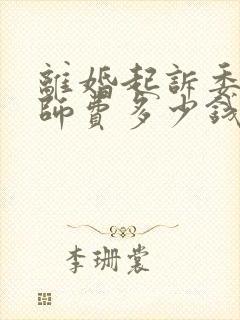 離婚起訴委
師費多少錢
李珊裳